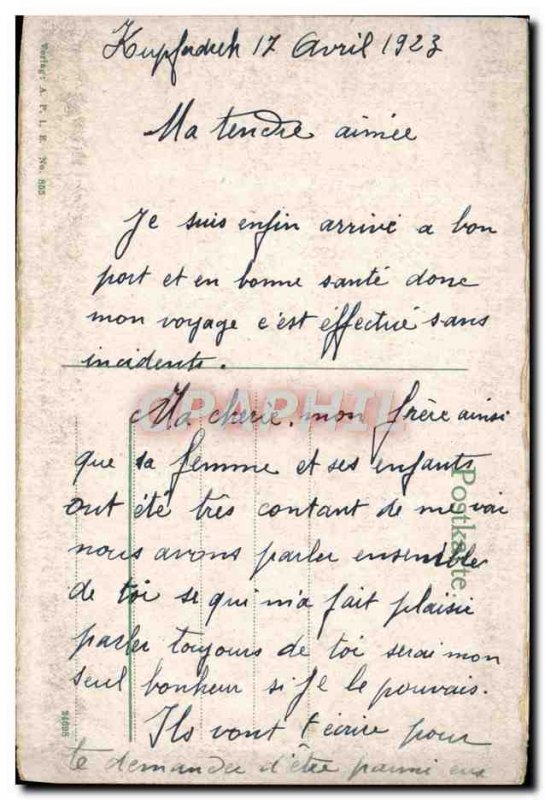 Kupfadreh 17 Avril 1923
Ma tendre aimée
Je suis enfin arrivé a bon
port et en bonne santé donc
mon voyage c'est éffectué sans
incidents.
Ma cherie, mon frère ainsi
que sa femme et ses enfants
ont été très contant de me voi
nous avons parler ensemble
de toi se qui m'a fait plaisir
parler toujours de toi serai mon
seul bonheur si je le pouvais.
Ils vont t'écrire pour
te demander d'être parmi eux
Verlag: A. P. L. E. No. 855
Postkarte.
CPAPHIL